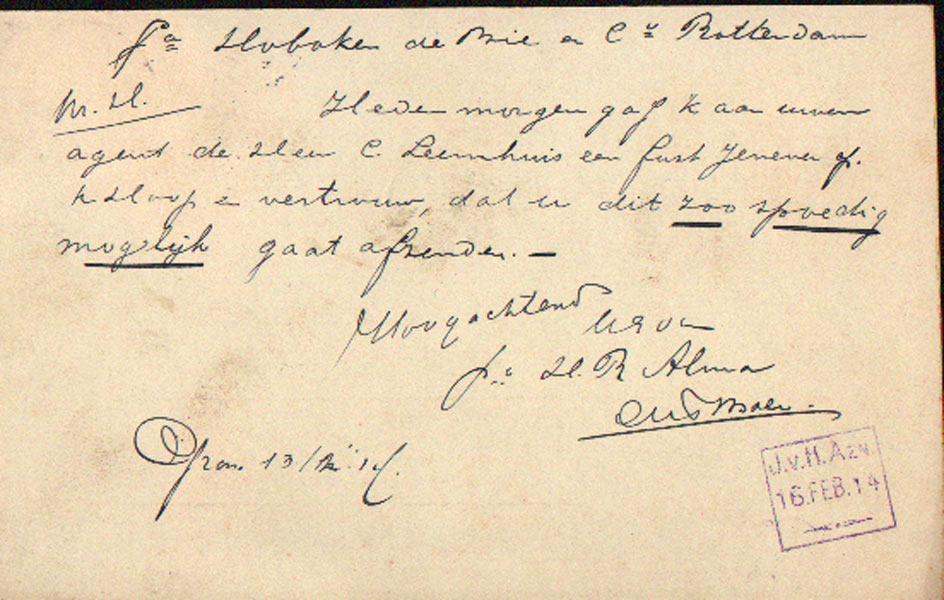 Fa Hoboken de Bie en Co Rotterdam
M. H. Heden morgen gaf 'k aan uwen
agent de Heer C. Leemhuis een fust Jenever op.
'k Hoop en vertrouw, dat u dit zoo spoedig
mogelijk gaat afzenden. —
Hoogachtend
Fa H. R Alma
Gron. 13/ 14.
J.v.H.AZN.
16.FEB.14